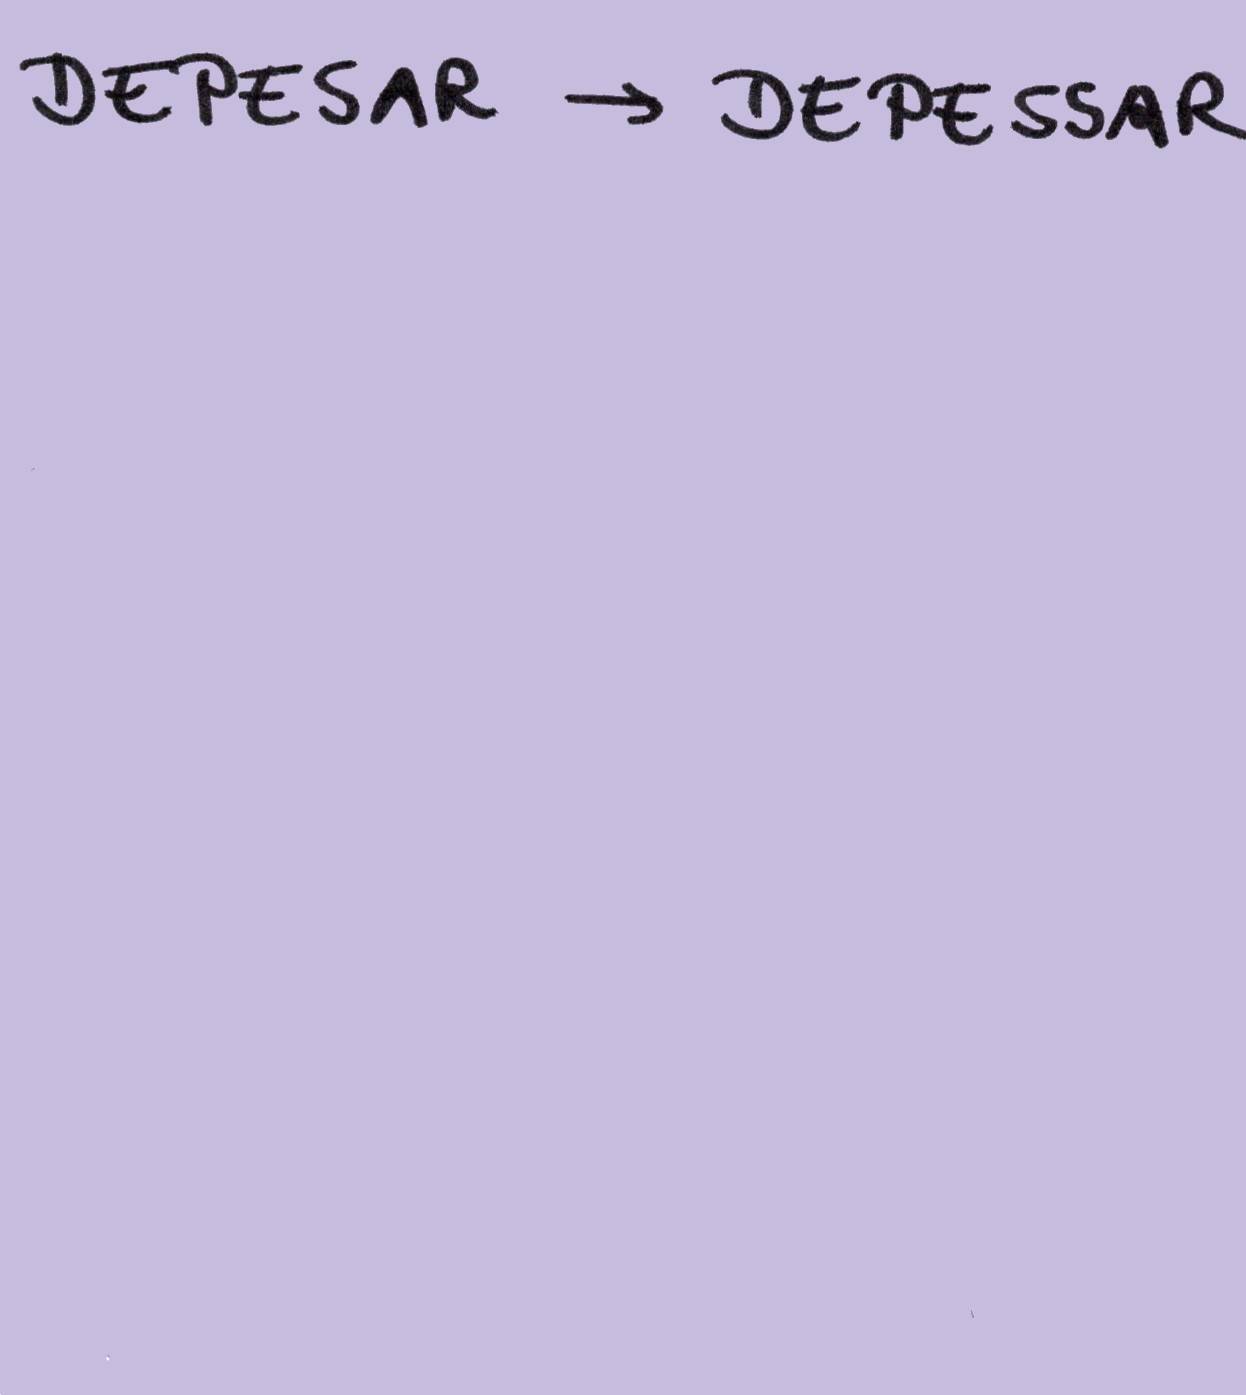 DEPESAR → DEPESSAR